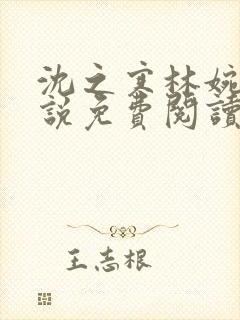 沈之寒林婉
說免費閱讀
王志根